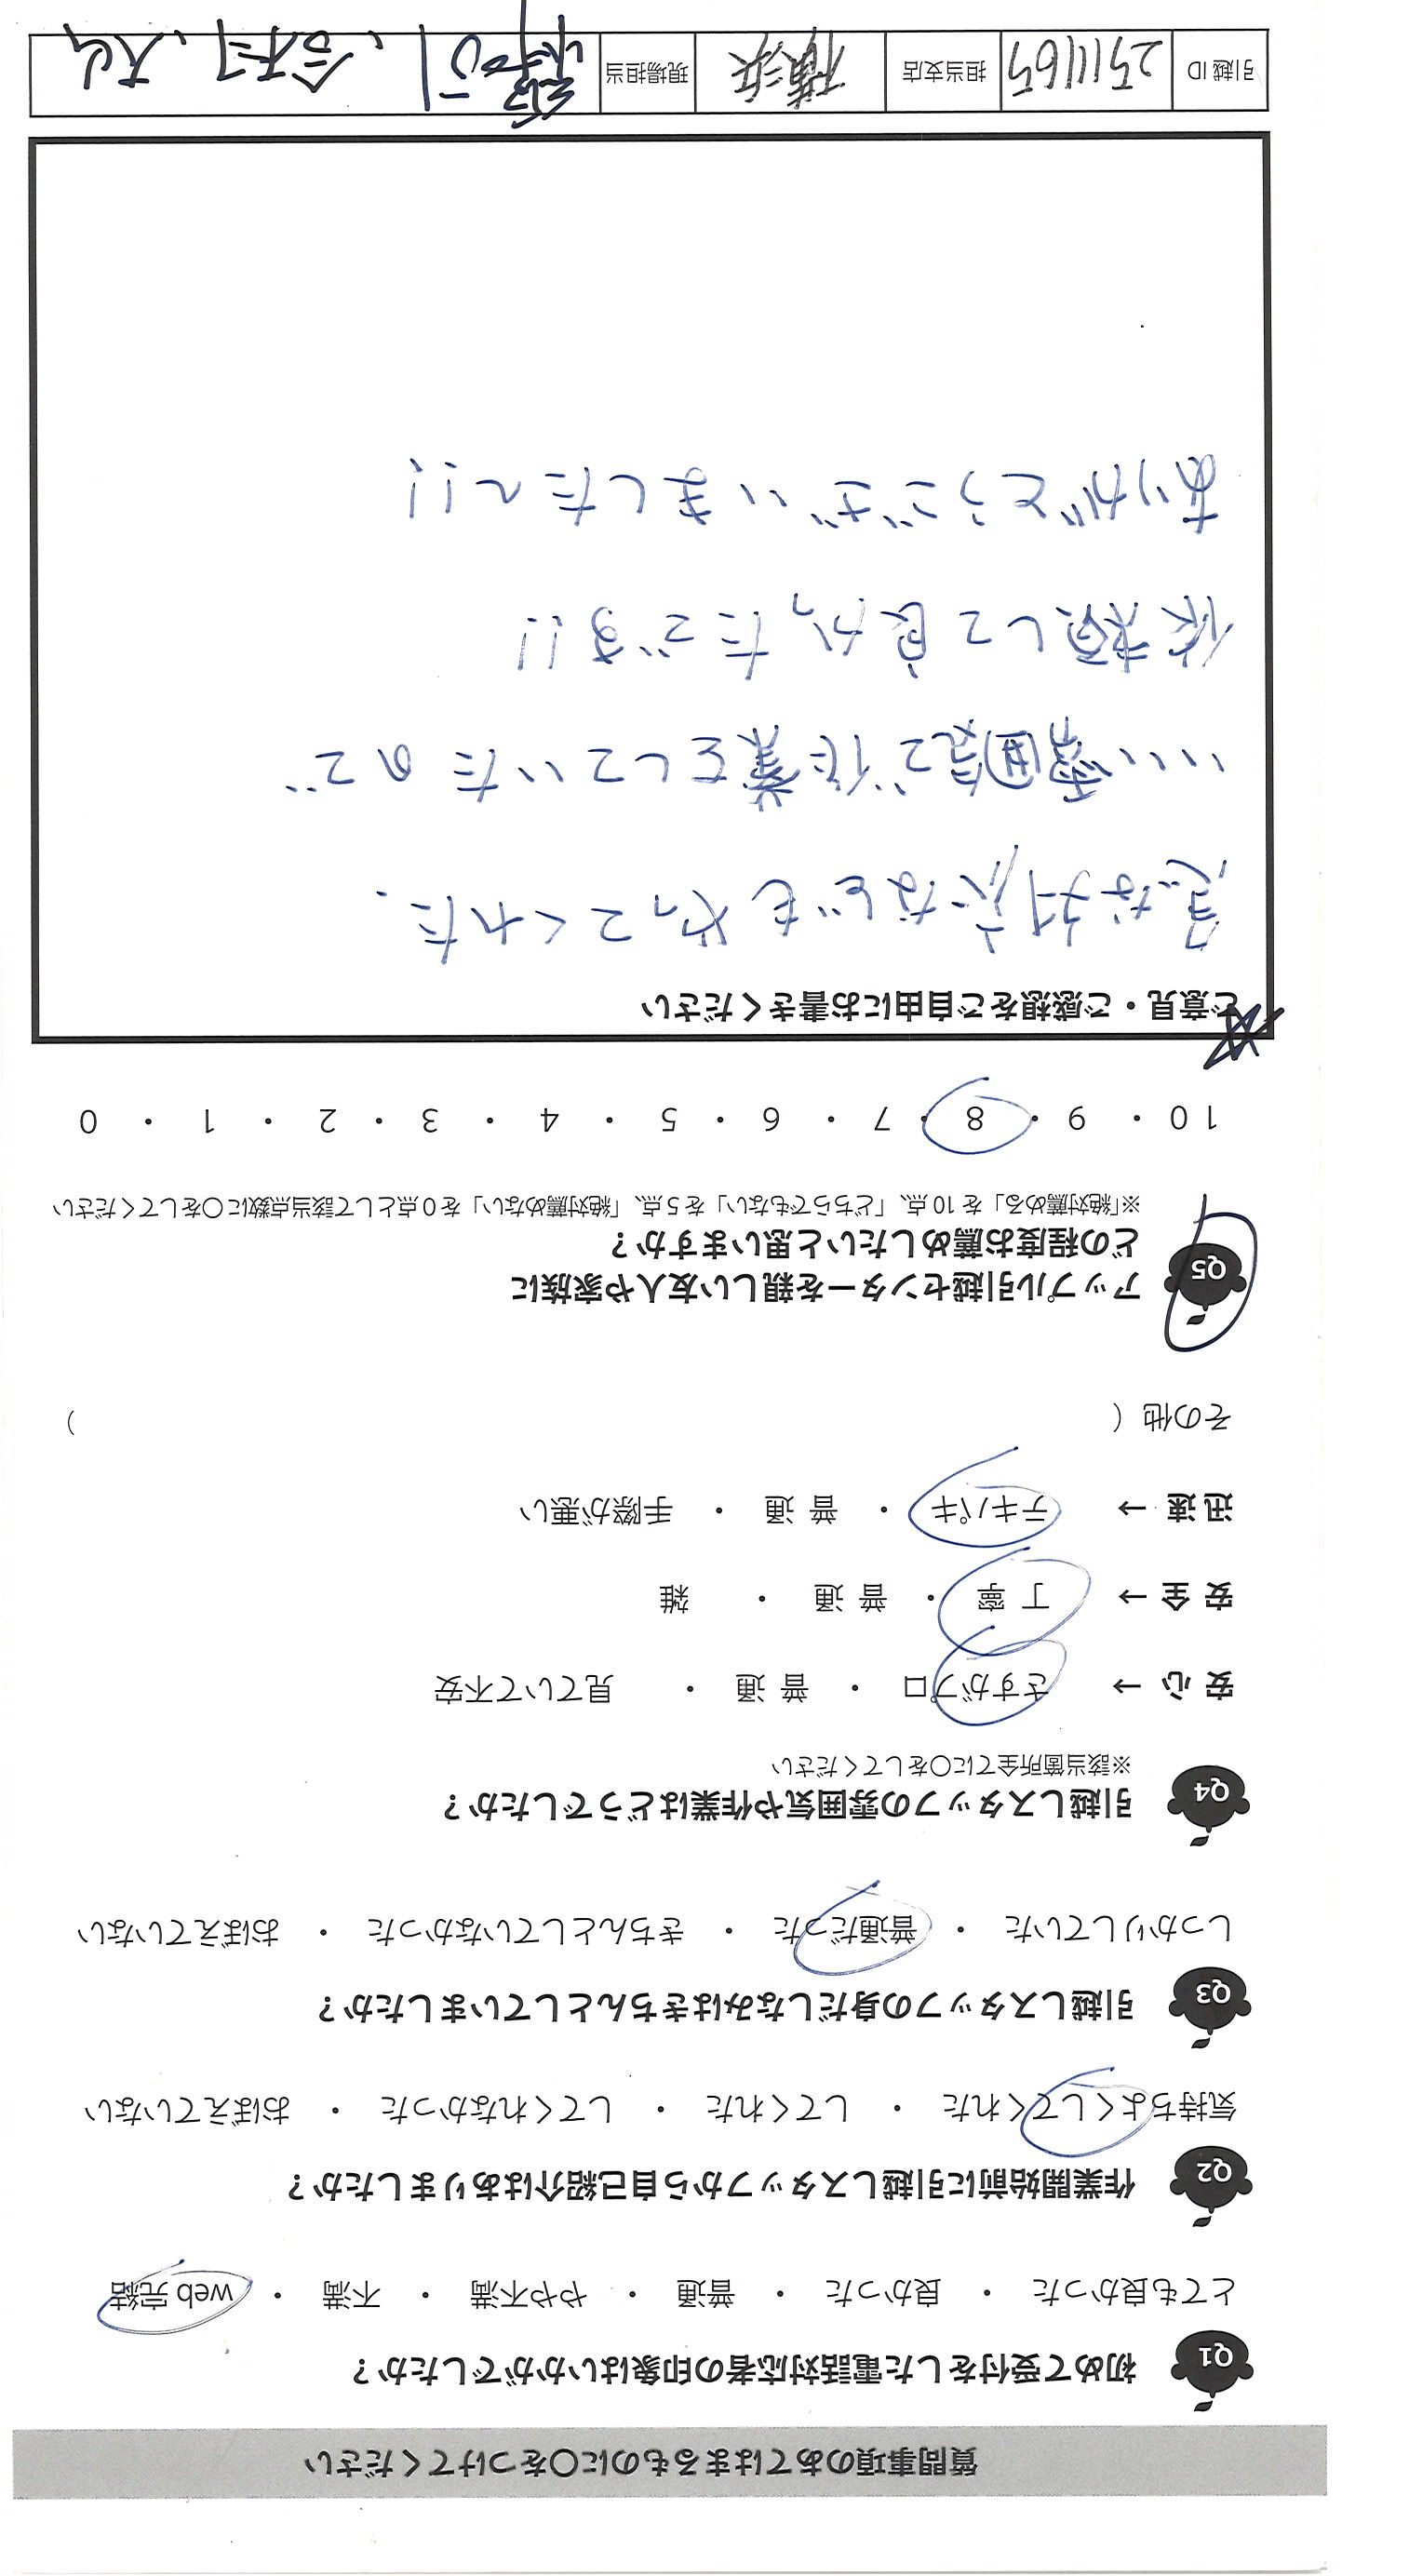 質問事項のあてはまるものに〇をつけてください
Q1 初めて受付をした電話対応者の印象はいかがでしたか?
とても良かった ・ 良かった ・ 普通 ・ やや不満 ・ 不満 ・ web 完結
Q2 作業開始前に引越しスタッフから自己紹介はありましたか?
気持ちよくしてくれた ・ してくれた ・ してくれなかった ・ おぼえていない
Q3 引越しスタッフの身だしなみはきちんとしていましたか?
しっかりしていた ・ 普通だった ・ きちんとしていなかった ・ おぼえていない
Q4 引越しスタッフの雰囲気や作業はどうでしたか?
※該当箇所全てに〇をしてください
安 心 → さすがプロ ・ 普 通 ・ 見ていて不安
安 全 → 丁 寧 ・ 普 通 ・ 雑
迅 速 → テキパキ ・ 普 通 ・ 手際が悪い
その他 ( )
Q5 アップル引越センターを親しい友人や家族に
どの程度お薦めしたいと思いますか?
※「絶対薦める」を 10 点、「どちらでもない」を 5 点、「絶対薦めない」を 0 点として該当点数に〇をしてください
10 ・ 9 ・ 8 ・ 7 ・ 6 ・ 5 ・ 4 ・ 3 ・ 2 ・ 1 ・ 0
ご意見・ご感想をご自由にお書きください
急な対応などもやってくれた.
いい雰囲気で作業をしていたので
依頼して良かったです!!
ありがとうございました〜!!
引越 ID 2511165 担当支店 横浜 現場担当